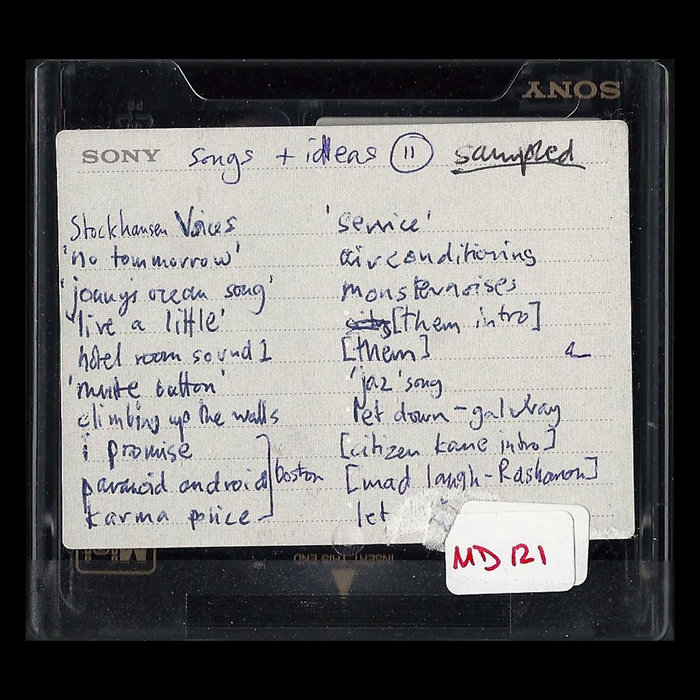 SONY
SONY songs + ideas 11 sampled
Stockhausen Voices
'no tommorrow'
'jonnys ocean song'
'live a little'
hotel room sound 1
'mute button'
climbing up the walls
i promise
paranoid android
karma police
boston
'service'
airconditioning
monsternoises
[them intro]
[them]
'jaz' song
let down - galway
[citizen kane intro]
[mad laugh - Rashamon]
let
MD 121
Mini
INSERT THIS END